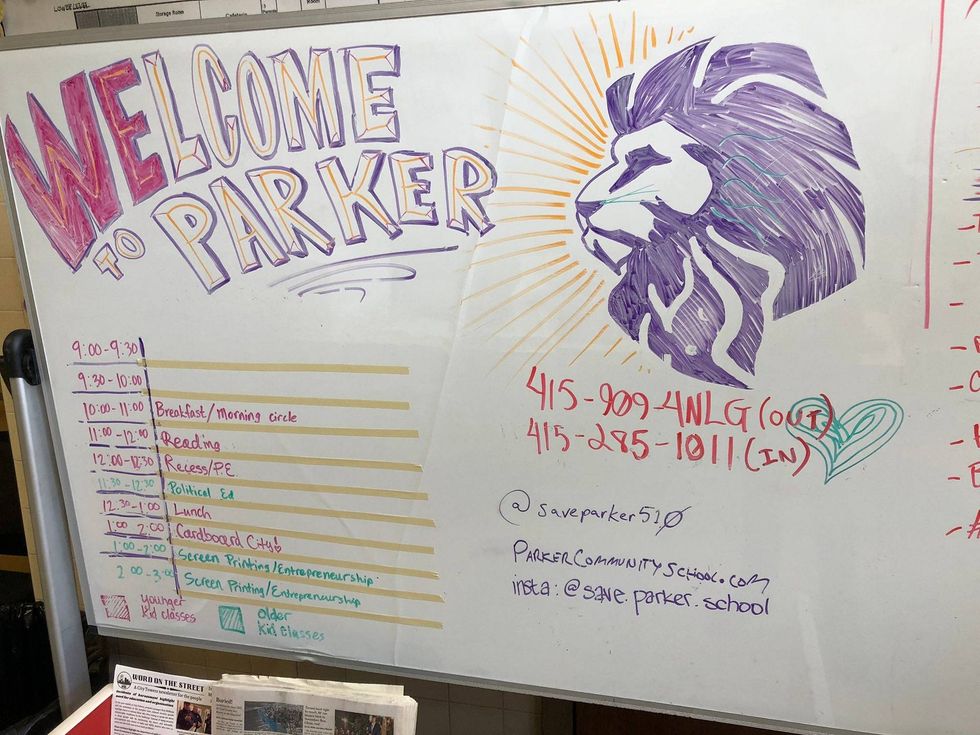 LOWER LEVEL
Storage Rooms
Cafeteria
Room
WELCOME
TO PARKER
9:00-9:30
9:30-10:00
10:00-11:00 Breakfast/Morning circle
11:00-12:00 Reading
12:00-12:30 Recess/P.E.
11:30-12:30 Political Ed
12:30-1:00 Lunch
1:00-2:00 Cardboard City!
1:00-2:00 Screen Printing/Entrepreneurship
2:00-3:00 Screen Printing/Entrepreneurship
Younger
Kid classes
Older
Kid Classes
415-909-4NLG (OUT)
415-285-1011 (IN)
@saveparker510
PARKERCOMMUNITYSCHOOL.COM
insta: @save.parker.school
WORD ON THE STREET
A City Towers newsletter for the people
Buried!